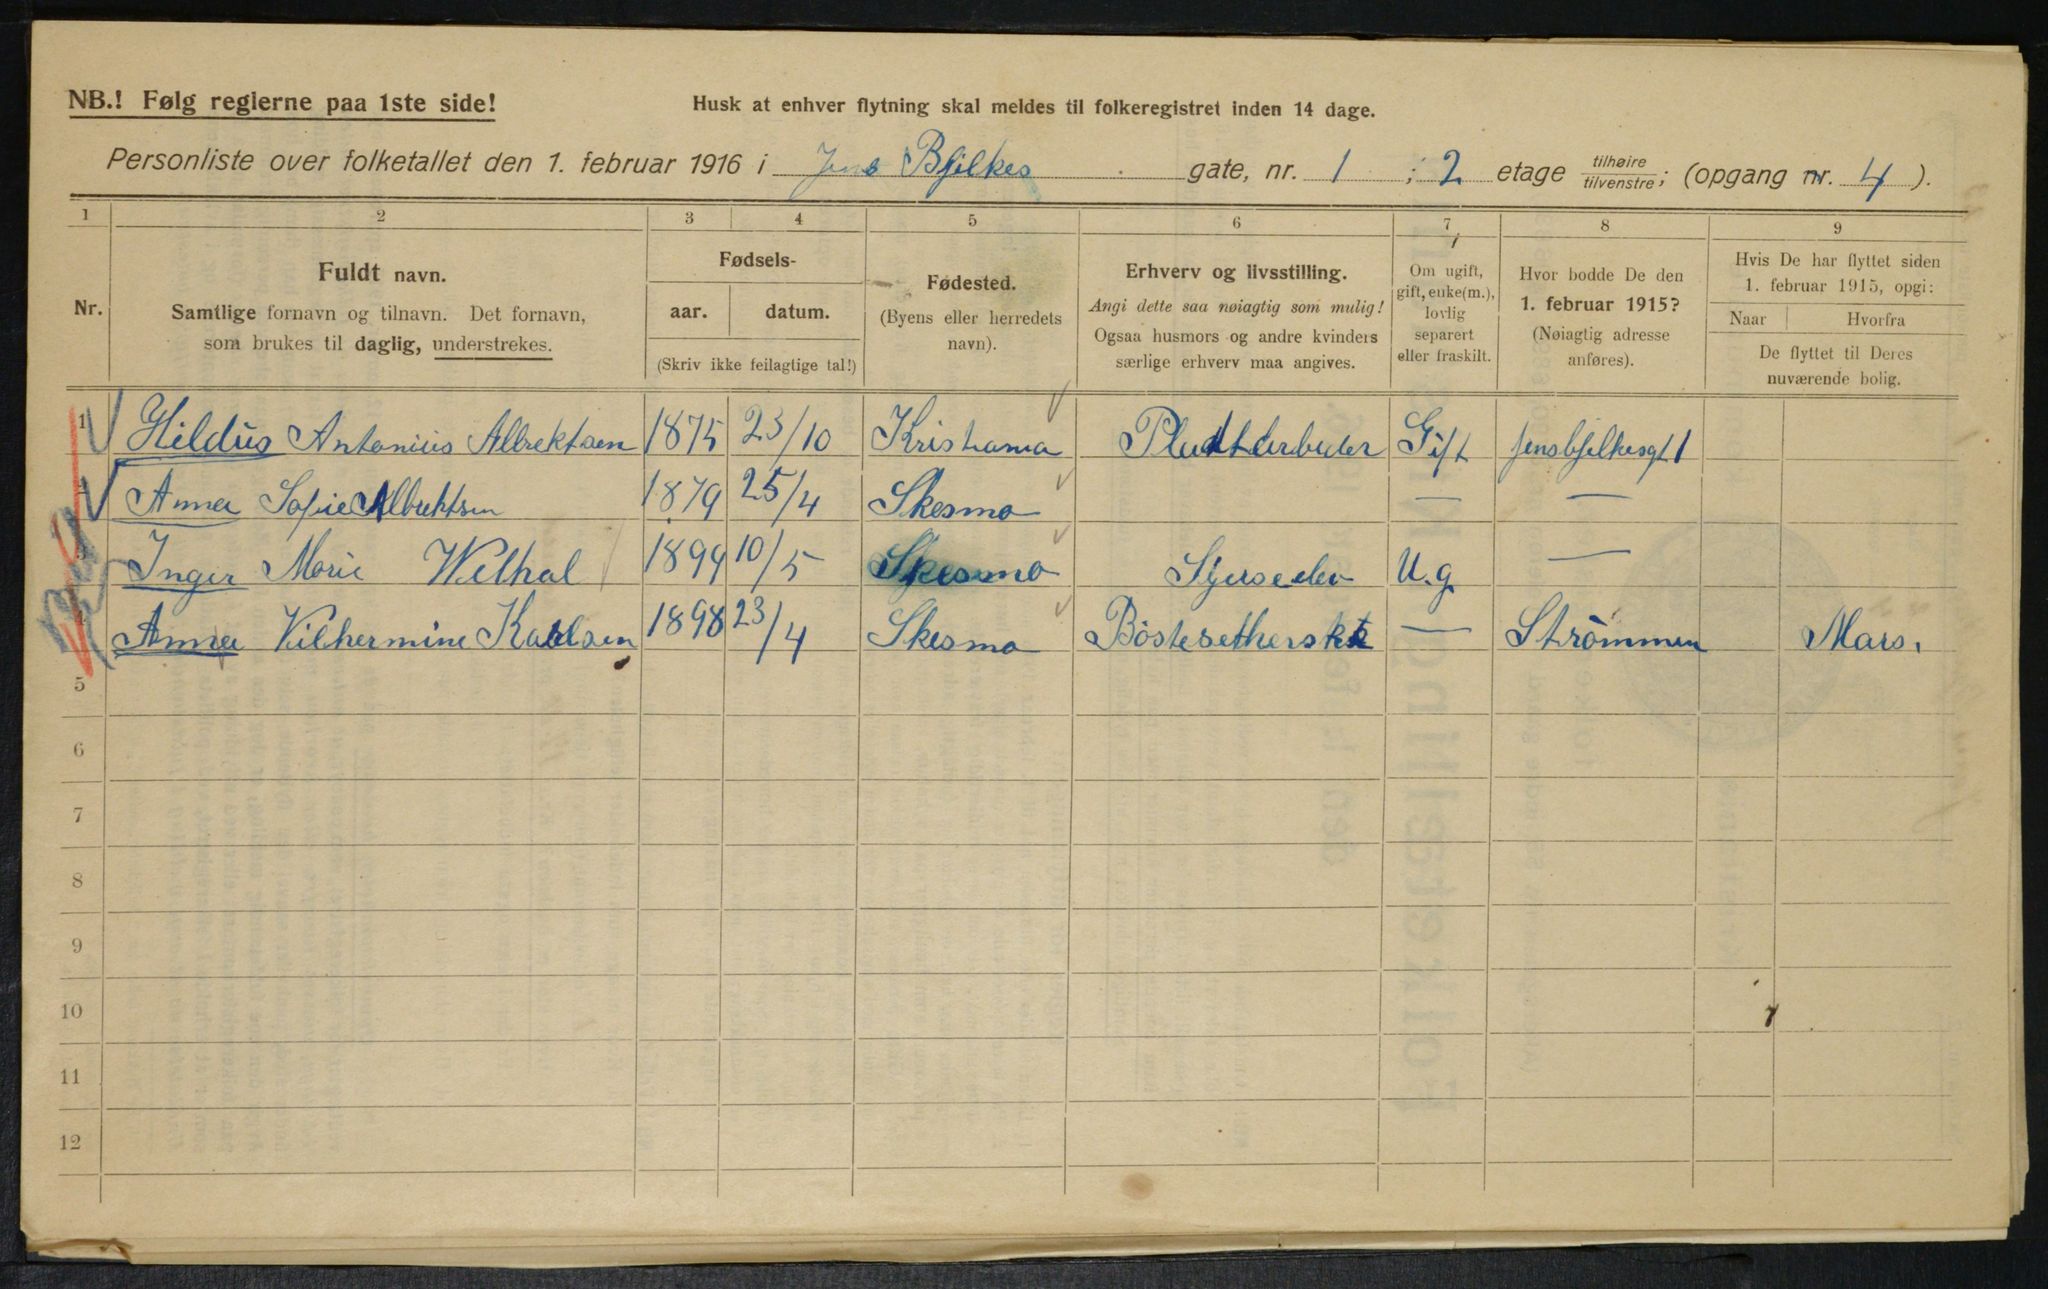 NB.! Følg reglerne paa 1ste side!
Husk at enhver flytning skal meldes til folkeregistret inden 14 dage.
Personliste over folketallet den 1. februar 1916 i Jens Bjelkes gate, nr. 1 ; 2 etage tilhøire/tilvenstre; (opgang nr. 4 ).
1 2 3 4 5 6 7 8 9
Nr.
Fuldt navn.
Samtlige fornavn og tilnavn. Det fornavn,
som brukes til daglig, understrekes.
Fødsels-
aar. datum.
(Skriv ikke feilagtige tal!)
Fødested.
(Byens eller herredets
navn).
Erhverv og livsstilling.
Angi dette saa nøiagtig som mulig!
Ogsaa husmors og andre kvinders
særlige erhverv maa angives.
Om ugift,
gift, enke(m.),
lovlig
separert
eller fraskilt.
Hvor bodde De den
1. februar 1915?
(Nøiagtig adresse
anføres).
Hvis De har flyttet siden
1. februar 1915, opgi:
Naar Hvorfra
De flyttet til Deres
nuværende bolig.
1 Hildus Antonius Albrektsen 1875 23/10 Kristiania Gift Jensbjelkesgt 1
2 Anna Sofie Albrektsen 1879 25/4 Skesmo — —
3 Inger Marie Wethal 1899 10/5 Skesmo U.g —
4 Anna Vilhermine Karlsen 1898 23/4 Skesmo — Strömmen Mars.
5
6
7
8
9
10
11
12